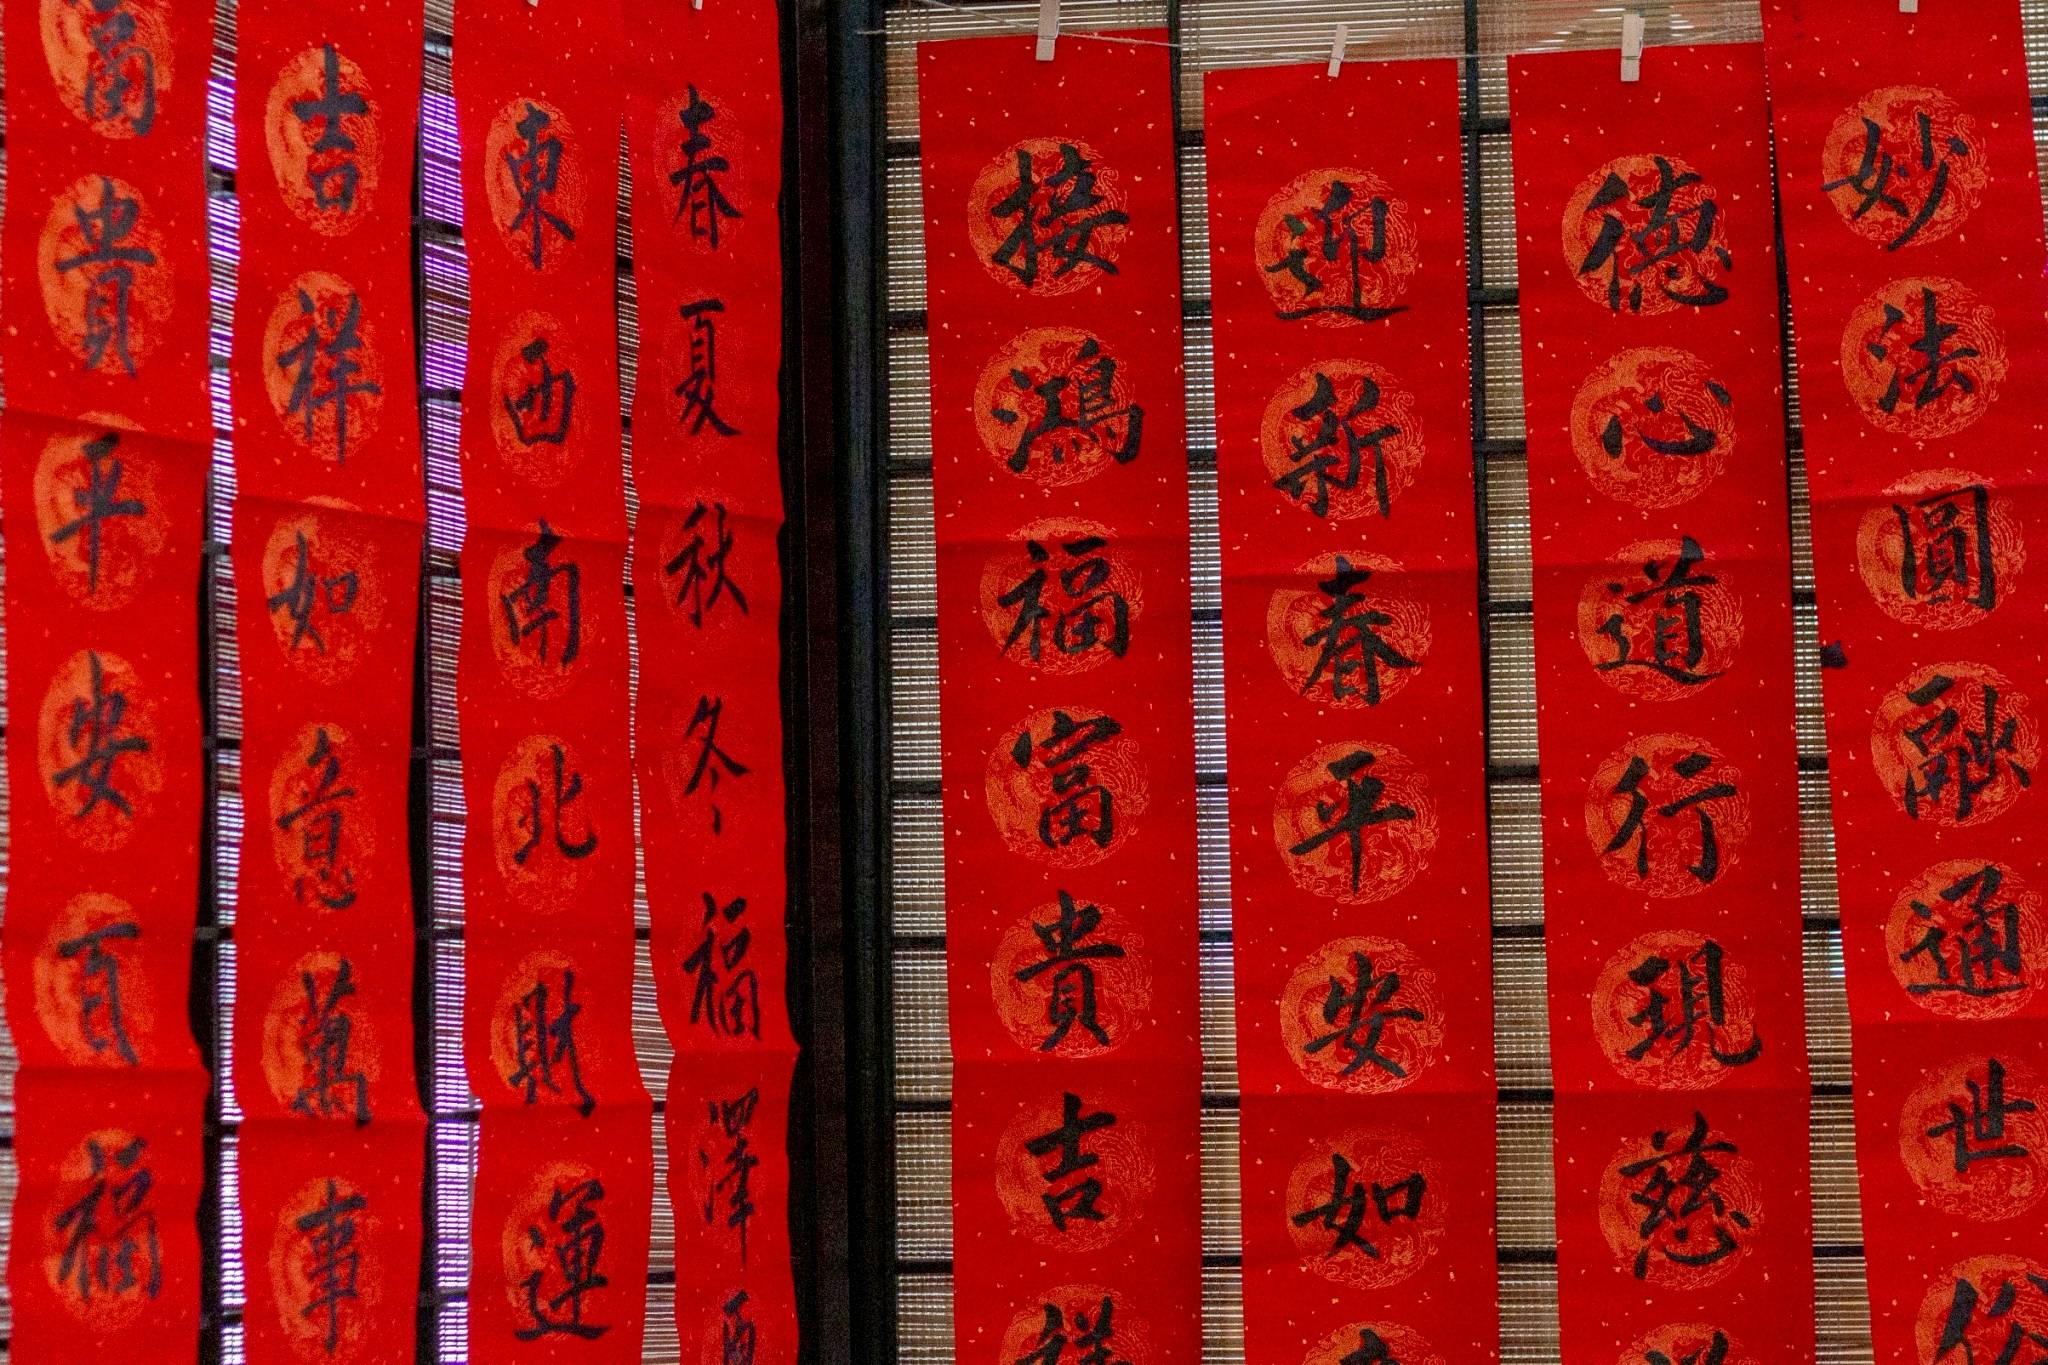 富貴平安百福
吉祥如意萬事
東西南北財運
春夏秋冬福澤
接鴻福富貴吉祥
迎新春平安如
德心道行現慈
妙法圓融通世俗